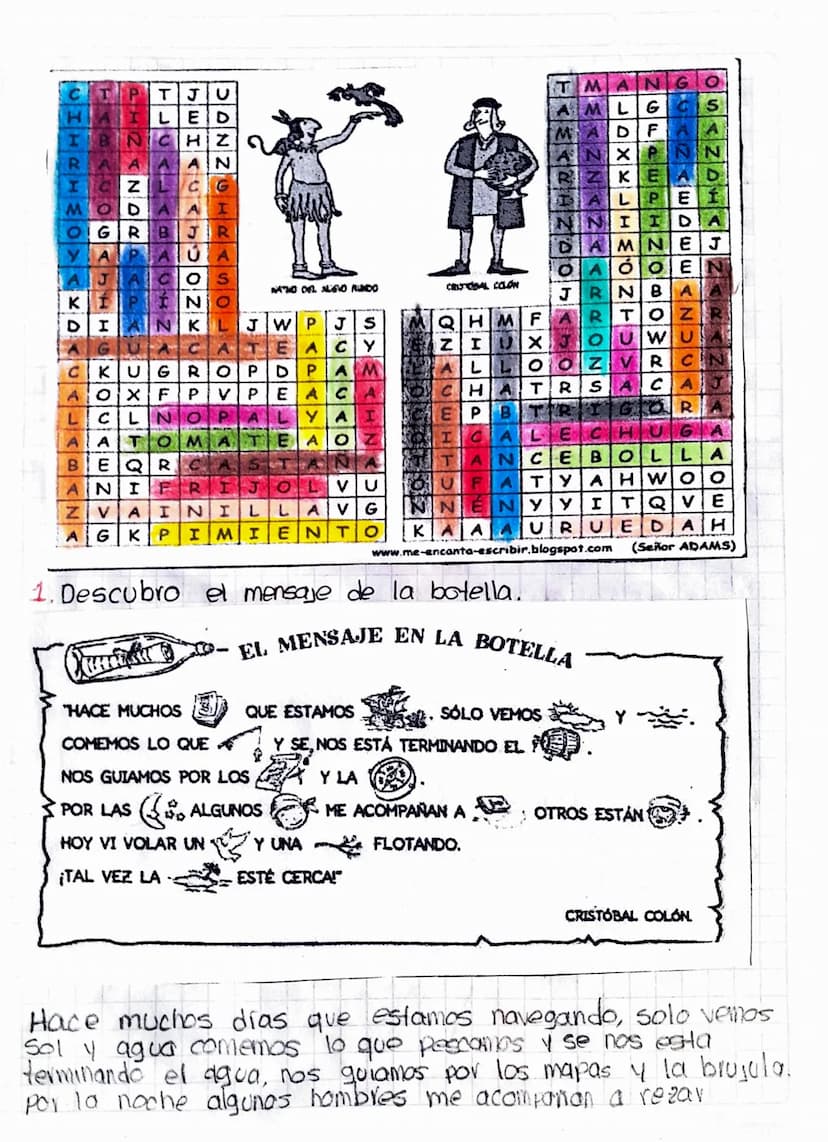 C T P T J U
H A I L E D
I B Ñ C H Z
R A A A A N
I C Z L C G
M O D A A I
O G R B J R
Y A P A Ú A
A J A C O S
K Í P Í N O
D I A N K L J W P J S
A G U A C A T E A C Y
C K U G R O P D P A M
A O X F P V P E A C A
L C L N O P A L Y A I
A A T O M A T E A O Z
B E Q R C A S T A Ñ A
A N I F R I J O L V U
Z V A I N I L L A V G
A G K P I M I E N T O
NATIVO DEL NUEVO MUNDO
CRISTÓBAL COLÓN
T M A N G O
A M L G C S
M A D F A A
A N X P Ñ N
R Z K E A D
I A L P E Í
N N I I D A
D A M N E J
O A Ó O E N
J R N B A A
M Q H M F A R T O Z R
E Z I U X J O U W U A
L A L L O O Z V R C N
O C H A T R S A C A J
C E P B T R I G O R A
O I C A L E C H U G A
T T A N C E B O L L A
Ó U F A T Y A H W O O
N N É N Y Y I T Q V E
K A A A U R U E D A H
www.me-encanta-escribir.blogspot.com (Señor ADAMS)
1. Descubro el mensaje de la botella.
EL MENSAJE EN LA BOTELLA
"HACE MUCHOS QUE ESTAMOS . SÓLO VEMOS Y .
COMEMOS LO QUE Y SE NOS ESTÁ TERMINANDO EL .
NOS GUIAMOS POR LOS Y LA .
POR LAS ALGUNOS ME ACOMPAÑAN A ; OTROS ESTÁN .
HOY VI VOLAR UN Y UNA FLOTANDO.
¡TAL VEZ LA ESTÉ CERCA!"
CRISTÓBAL COLÓN.
Hace muchos días que estamos navegando, solo vemos
sol y agua comemos lo que pescamos y se nos esta
terminando el agua, nos guiamos por los mapas y la brujula.
por la noche algunos hombres me acompañan a rezar